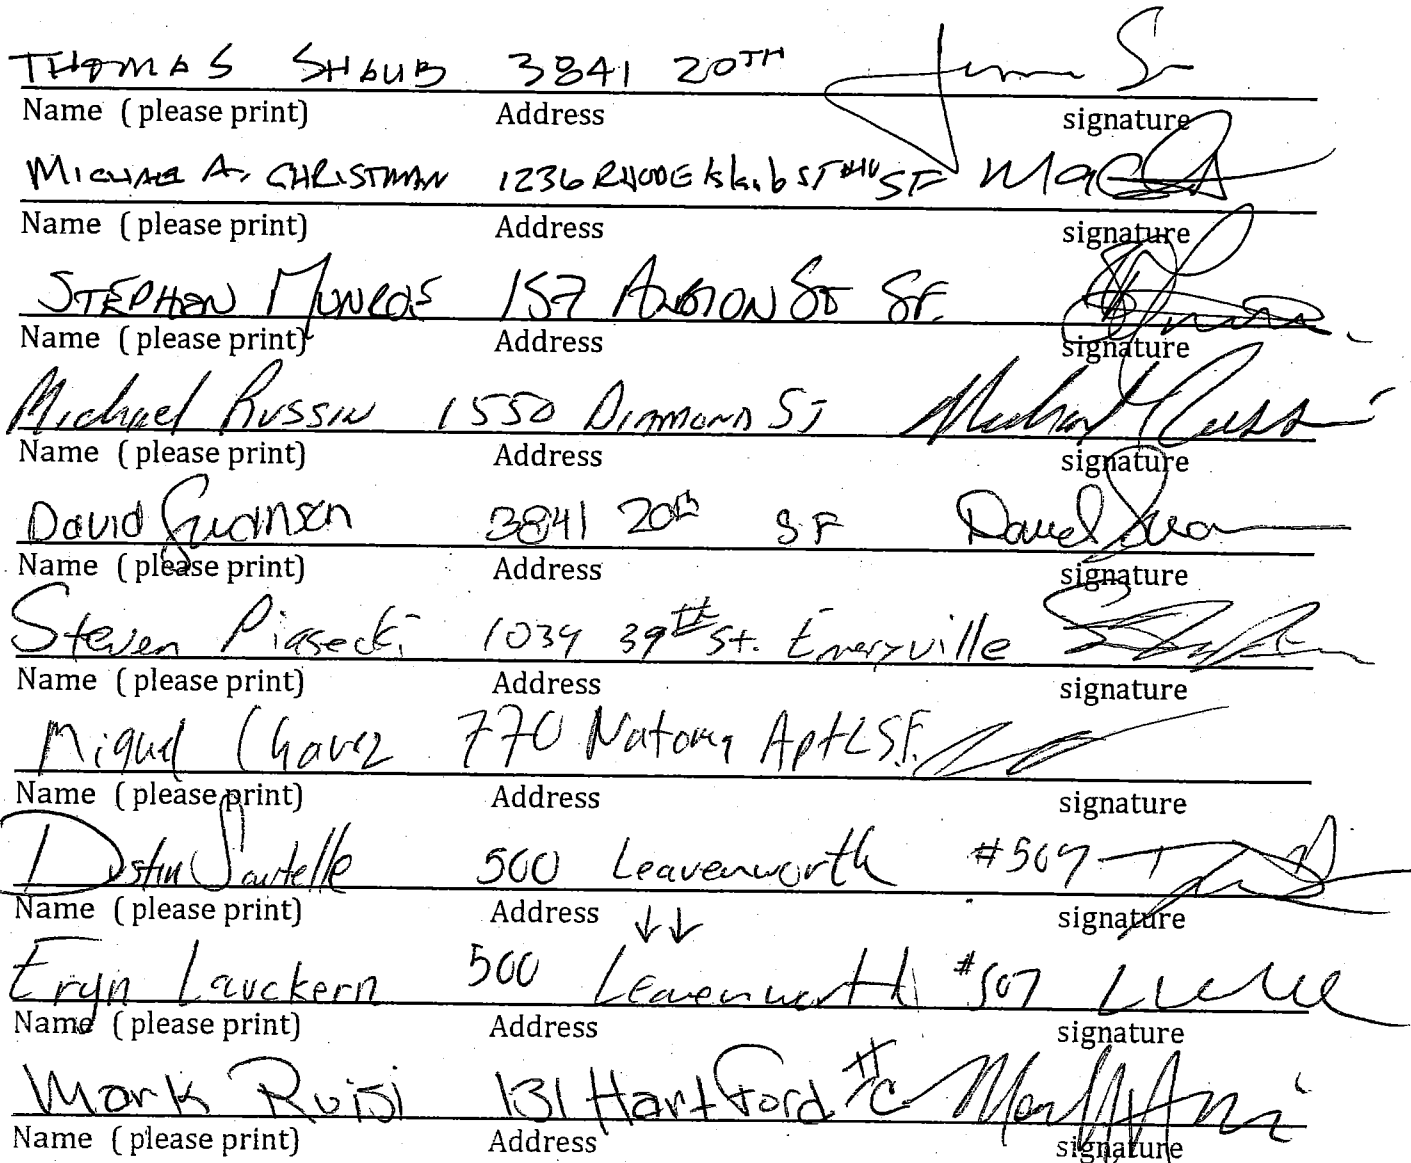 THOMAS SHAUB 3841 20TH
Name ( please print) Address signature
MICHAEL A. CHRISTMAN 1236 RHODE ST SF
Name ( please print) Address signature
STEPHEN MUNROS 157 ALBION ST SF.
Name ( please print) Address signature
Michael Russin 1550 DIAMOND ST
Name ( please print) Address signature
David Swanson 3841 20th SF David
Name ( please print) Address signature
Steven Piasecki 1034 39th St. Emeryville
Name ( please print) Address signature
Miguel Chavez 770 Natoma Apt S.F.
Name ( please print) Address signature
Dustin Sawtelle 500 Leavenworth #507
Name ( please print) Address ↓↓ signature
Eryn Lauckern 500 Leavenworth #507
Name ( please print) Address signature
Mark Ruisi 131 Hartford #C
Name ( please print) Address signature